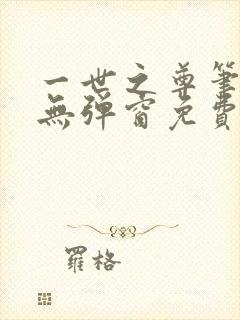 一世之尊筆
無彈窗免費
羅格